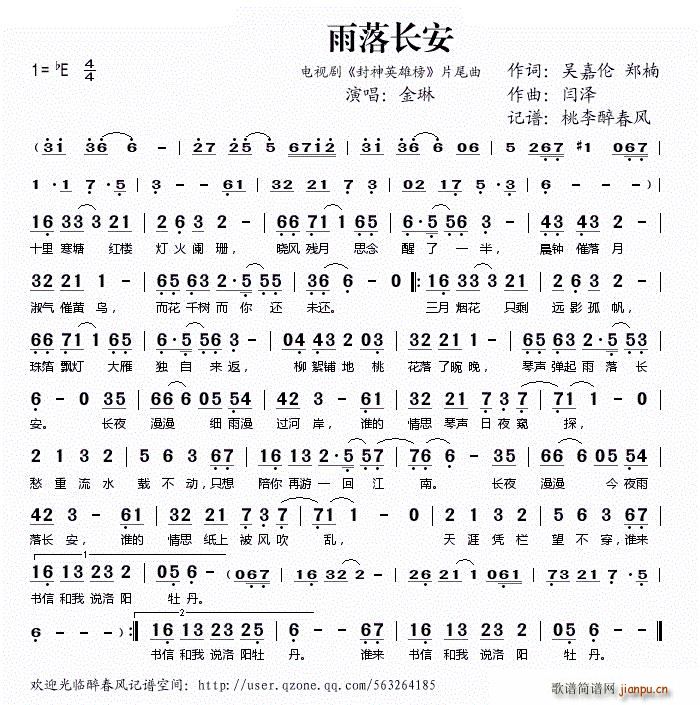 雨落长安
1=♭E 4/4
电视剧《封神英雄榜》片尾曲
演唱：金琳
作词：吴嘉伦 郑楠
作曲：闫泽
记谱：桃李醉春风
( 3i 36 6 - | 27 25 5 67i2 | 3i i 36 6 06 | 5 267 #1 067 |
1 · 1 7 · 5 | 3 - - 61 | 32 21 7 3 | 02 17 5 · 3 | 6 - - - ) |
16 33 3 21 | 2 6 3 2 - | 66 71 1 65 | 6 · 5 56 3 - | 43 43 2 - |
十里 寒塘 红楼 灯 火 阑 珊， 晓风 残月 思念 醒 了 一 半， 晨钟 催落 月
32 21 1 - | 65 63 2 · 5 55 | 36 6 - 0 ‖: 16 33 3 21 | 65 63 2 - |
淑气 催黄 鸟， 而花 千树 而 你 还 未还。 三月 烟花 只剩 远 影 孤 帆，
66 71 1 65 | 6 · 5 56 3 - | 04 43 2 03 | 32 21 1 - | 65 63 2 · 5 53 |
珠箔 飘灯 大雁 独 自 来 返， 柳 絮铺 地 桃 花落 了晼 晚， 琴声 弹起 雨 落 长
6 - 0 35 | 66 6 05 54 | 42 3 - 61 | 32 21 7 3 7 | 71 1 - 0 |
安。 长夜 漫漫 细 雨漫 过河 岸， 谁的 情思 琴声 日 夜 窥 探，
2 1 3 2 | 5 6 3 67 | 16 13 2 · 5 57 | 76 6 - 35 | 66 6 05 54 |
愁 重 流 水 载 不 动，只想 陪你 再游 一 回 江 南。 长夜 漫漫 今 夜雨
42 3 - 61 | 32 21 7 3 7 | 71 1 - 0 | 2 1 3 2 | 5 6 3 67 |
落长 安， 谁的 情思 纸上 被 风 吹 乱， 天 涯 凭 栏 望 不 穿，谁来
1
16 13 23 2 | 05 6 - (067 | 16 32 2 - | 26 21 1 061 | 23 21 7 · 5 |
书信 和我 说洛 阳 牡 丹。
2
6 - - - ) :‖ 16 13 23 25 | 6 - - 67 | 16 13 23 2 | 05 6 - - ‖
书信 和我 说洛 阳牡 丹。 谁来 书信 和我 说洛 阳 牡 丹。
欢迎光临醉春风记谱空间: http://user.qzone.qq.com/563264185
歌谱简谱网
jianpu.cn